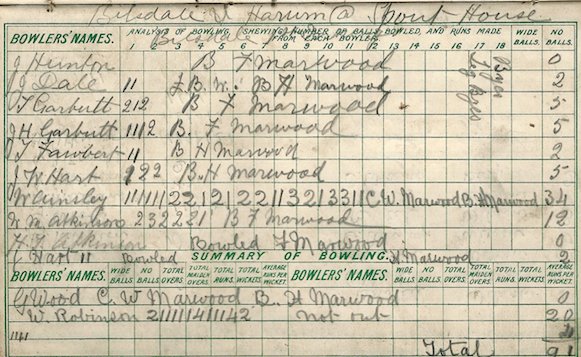 Bilsdale V Harum @ Spout House
BOWLERS' NAMES. ANALYSIS OF BOWLING, SHEWING NUMBER OF BALLS BOWLED, AND RUNS MADE FROM EACH BOWLER. WIDE BALLS. NO BALLS.
1 2 3 4 5 6 7 8 9 10 11 12 13 14 15 16 17 18
J Hunton B F Marwood 0
J Dale 11 F. B. W. B H Marwood 2
T Garbutt 212 B F Marwood 5
J H Garbutt 1112 B. F Marwood 5
J T Fawbert 11 B H Marwood 2
J W Hart 122 B. H Marwood 5
W Ainsley 11111221212211321331 1 C. W. Marwood B. H Marwood 34
W M Atkinson 232221 B F Marwood 12
F Atkinson Bowled F Marwood 0
J Hart 11 Bowled H Marwood 2
SUMMARY OF BOWLING.
BOWLERS' NAMES. WIDE BALLS. NO BALLS. TOTAL OVERS. TOTAL MAIDEN OVERS. TOTAL RUNS. TOTAL WICKETS. AVERAGE RUNS PER WICKET. BOWLERS' NAMES. WIDE BALLS. NO BALLS. TOTAL OVERS. TOTAL MAIDEN OVERS. TOTAL RUNS. TOTAL WICKETS. AVERAGE RUNS PER WICKET.
G Wood C. W Marwood B. H Marwood 0
W. Robinson 21111411142 not out 20
1141
Total 91
Byes
Leg Byes